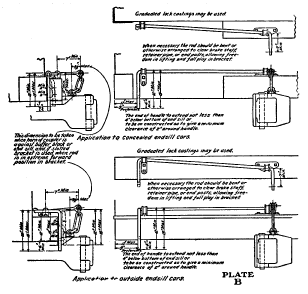 Graduated lock castings may be used
When necessary the rod should be bent or
otherwise arranged to clear brake staff,
retainer pipe, or end posts, allowing free-
dom in lifting and full play in bracket.
The end of handle to extend not less than
2" below bottom of end sill or
to be so constructed as to give a minimum
clearance of 2" around handle.
This dimension to be taken
when horn of coupler is
against buffer block or
end sill, and if slotted
bracket is used when rod
is in extreme forward
position in bracket.
Application to concealed endsill cars.
Graduated lock castings may be used.
When necessary the rod should be bent or
otherwise arranged to clear brake staff,
retainer pipe, or end posts, allowing free-
dom in lifting and full play in bracket.
The end of handle to extend not less than
2" below bottom of end sill or
to be so constructed as to give a minimum
clearance of 2" around handle.
Application to outside endsill cars.
PLATE
B